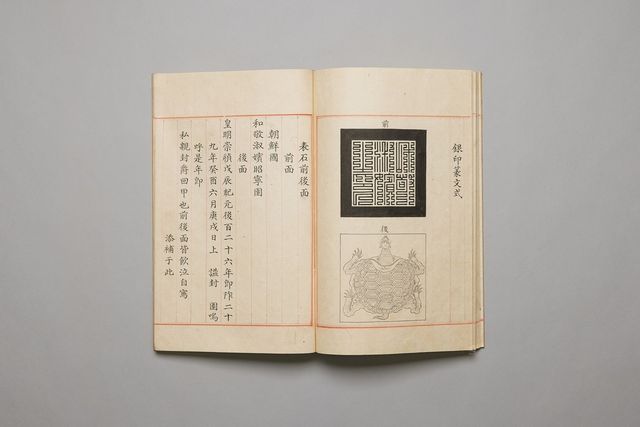 銀印篆文式
前
後
表石前後面
前面
朝鮮國
和敬淑嬪昭寧園
後面
皇明崇禎戊辰紀元後百二十六年卽阼二十
九年癸酉六月庚戌日上 諡封 園嗚
呼是年卽
私親封爵回甲也前後面皆飮泣自寫
添補于此